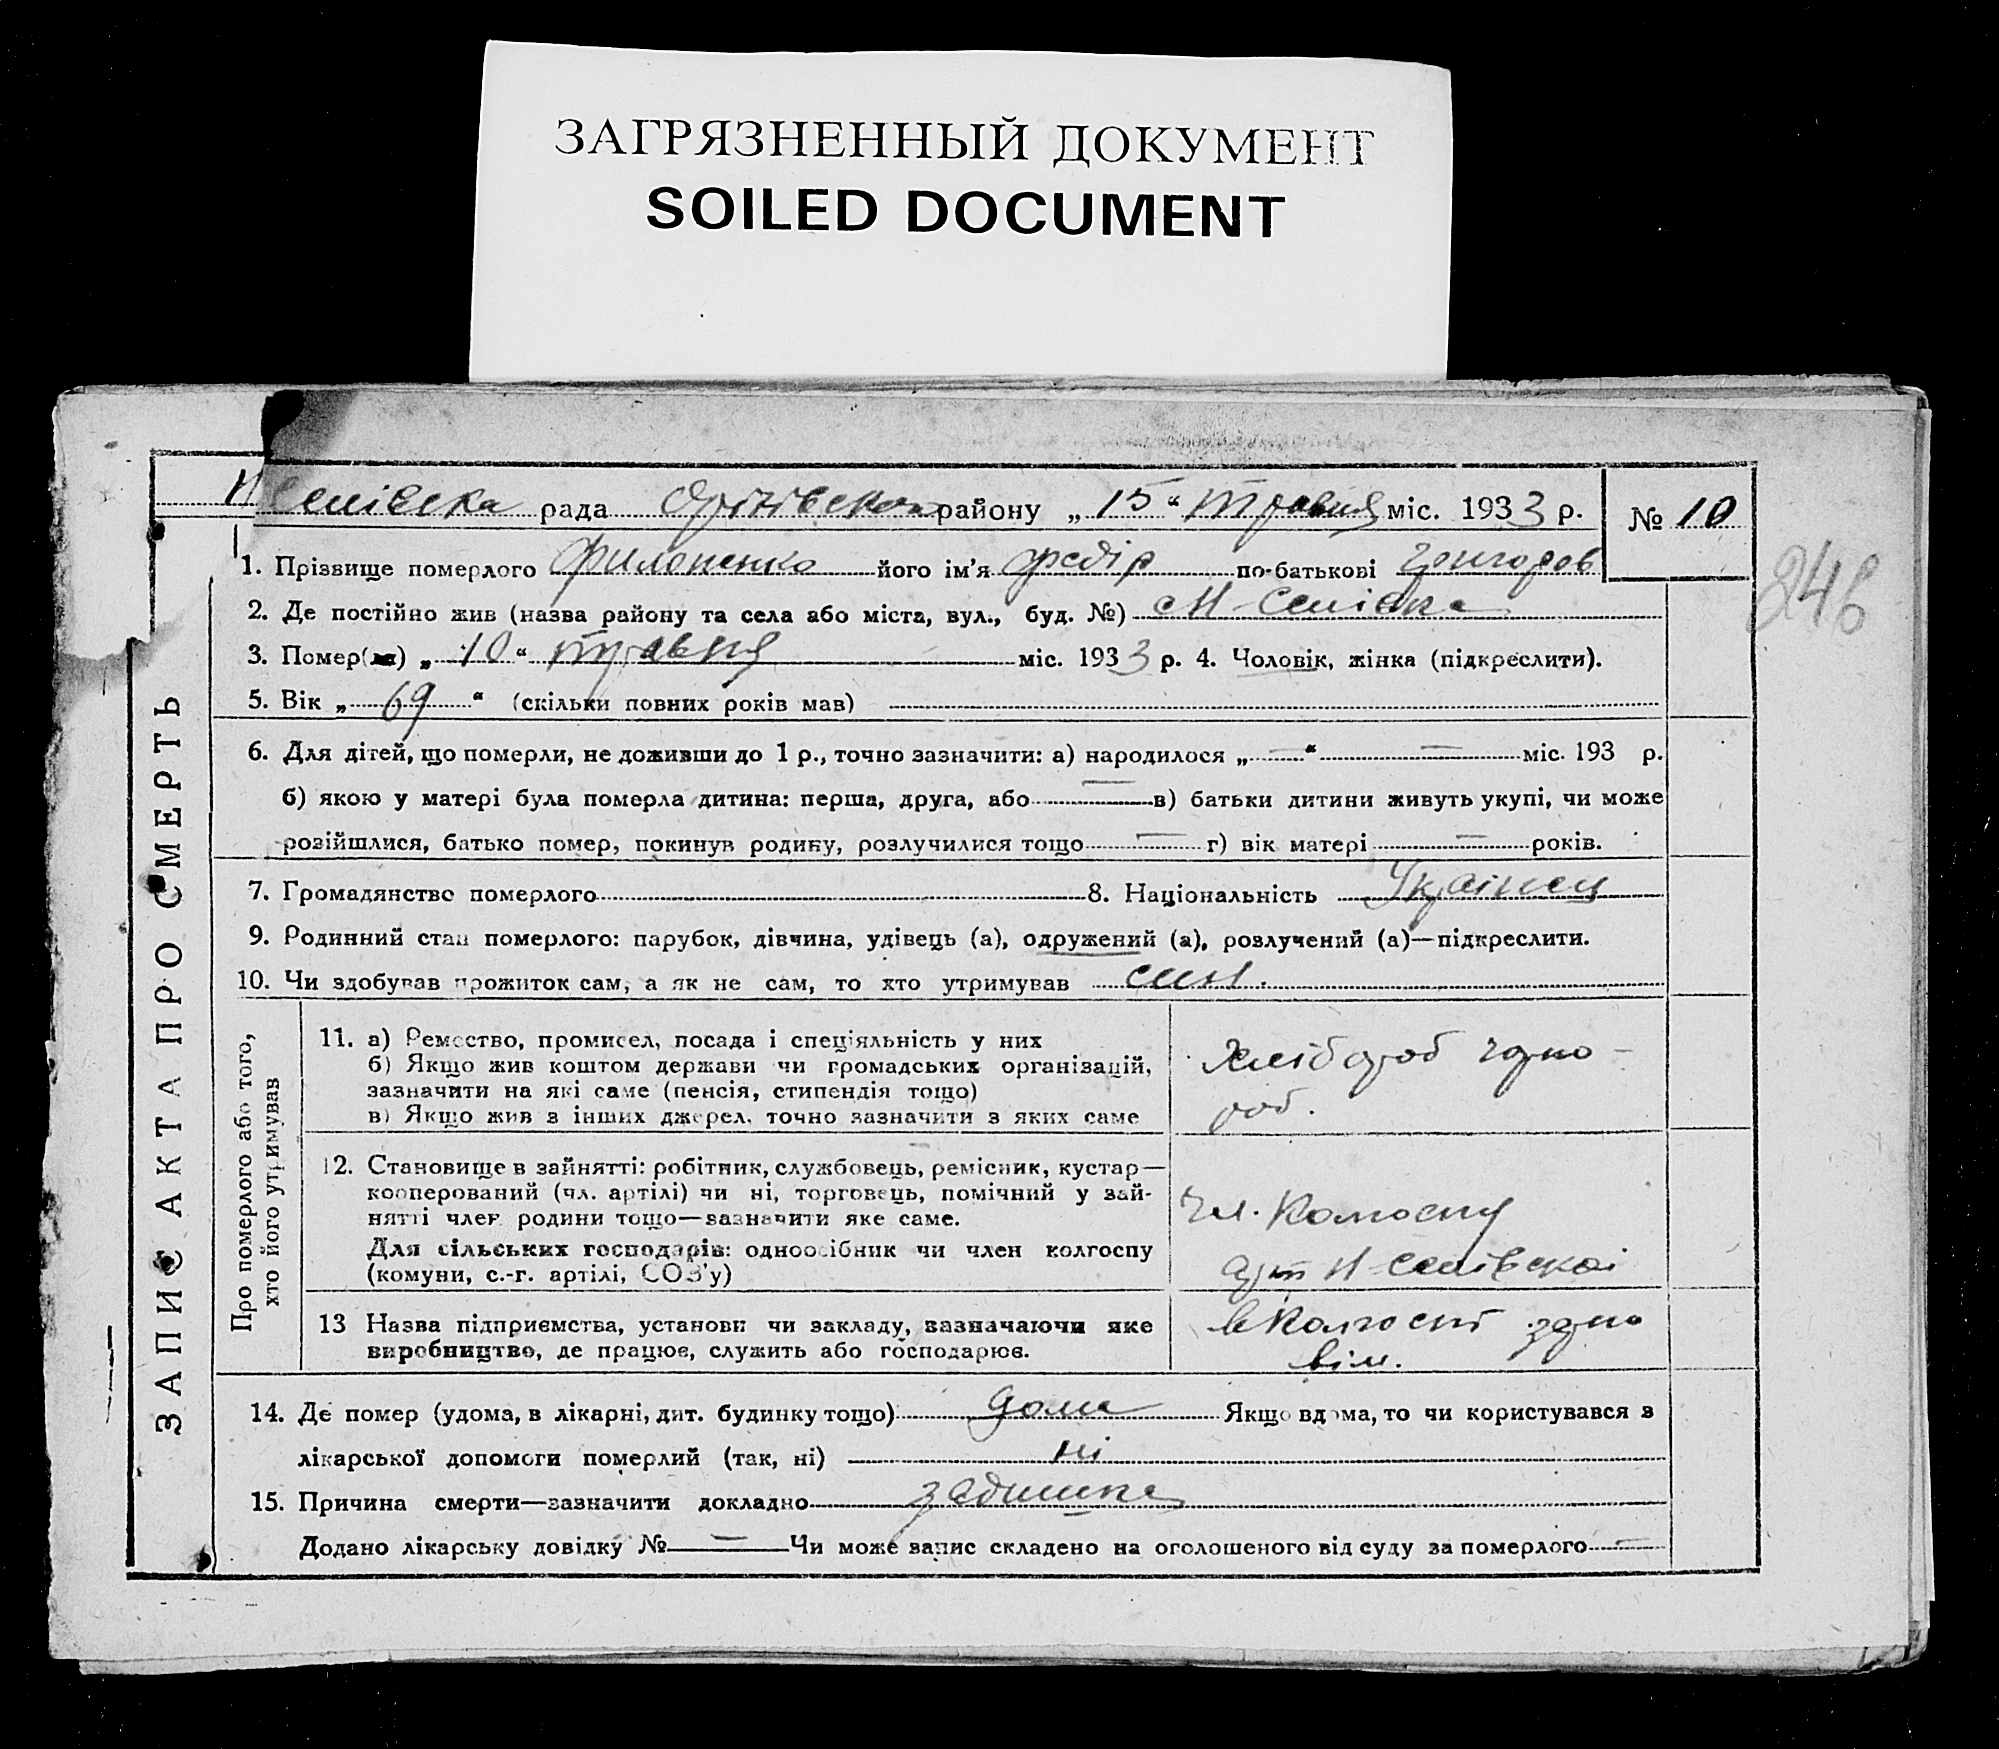 ЗАГРЯЗНЕННЫЙ ДОКУМЕНТ
SOILED DOCUMENT
ЗАПИС АКТА ПРО СМЕРТЬ
Н Селівська рада району „15“ травня міс. 1933 р. № 10
1. Прізвище померлого Филоненко його ім'я Федір по-батькові Григоров
246
2. Де постійно жив (назва району та села або міста, вул., буд. №) Н-Селівка
3. Помер(ла) „10“ травня міс. 1933 р. 4. Чоловік, жінка (підкреслити).
5. Вік „69“ (скільки повних років мав)
6. Для дітей, що померли, не доживши до 1 р., точно зазначити: а) народилося „—“ — міс. 193 р.
б) якою у матері була померла дитина: перша, друга, або — в) батьки дитини живуть укупі, чи може
розійшлися, батько помер, покинув родину, розлучилися тощо — г) вік матері — років.
7. Громадянство померлого 8. Національність Українец
9. Родинний стан померлого: парубок, дівчина, удівець (а), одружений (а), розлучений (а)—підкреслити.
10. Чи здобував прожиток сам, а як не сам, то хто утримував син.
Про померлого або того,
хто його утримував
11. а) Ремество, промисел, посада і спеціяльність у них
б) Якщо жив коштом держави чи громадських організацій,
зазначити на які саме (пенсія, стипендія тощо)
в) Якщо жив з інших джерел, точно зазначити з яких саме
Хлібороб
роб.
12. Становище в зайнятті: робітник, службовець, ремісник, кустар—
кооперований (чл. артілі) чи ні, торговець, помічний у зай-
нятті член родини тощо—зазначити яке саме.
Для сільських господарів: одноосібник чи член колгоспу
(комуни, с.-г. артілі, СОЗ'у)
Чл. Колгоспу
арт Н-Селівскоі
13 Назва підприємства, установи чи закладу, зазначаючи яке
виробництво, де працює, служить або господарює.
в Колгоспі
14. Де помер (удома, в лікарні, дит. будинку тощо) дома Якщо вдома, то чи користувався з
лікарської допомоги померлий (так, ні) ні
15. Причина смерти—зазначити докладно задишка
Додано лікарську довідку № — Чи може запис складено на оголошеного від суду за померлого —